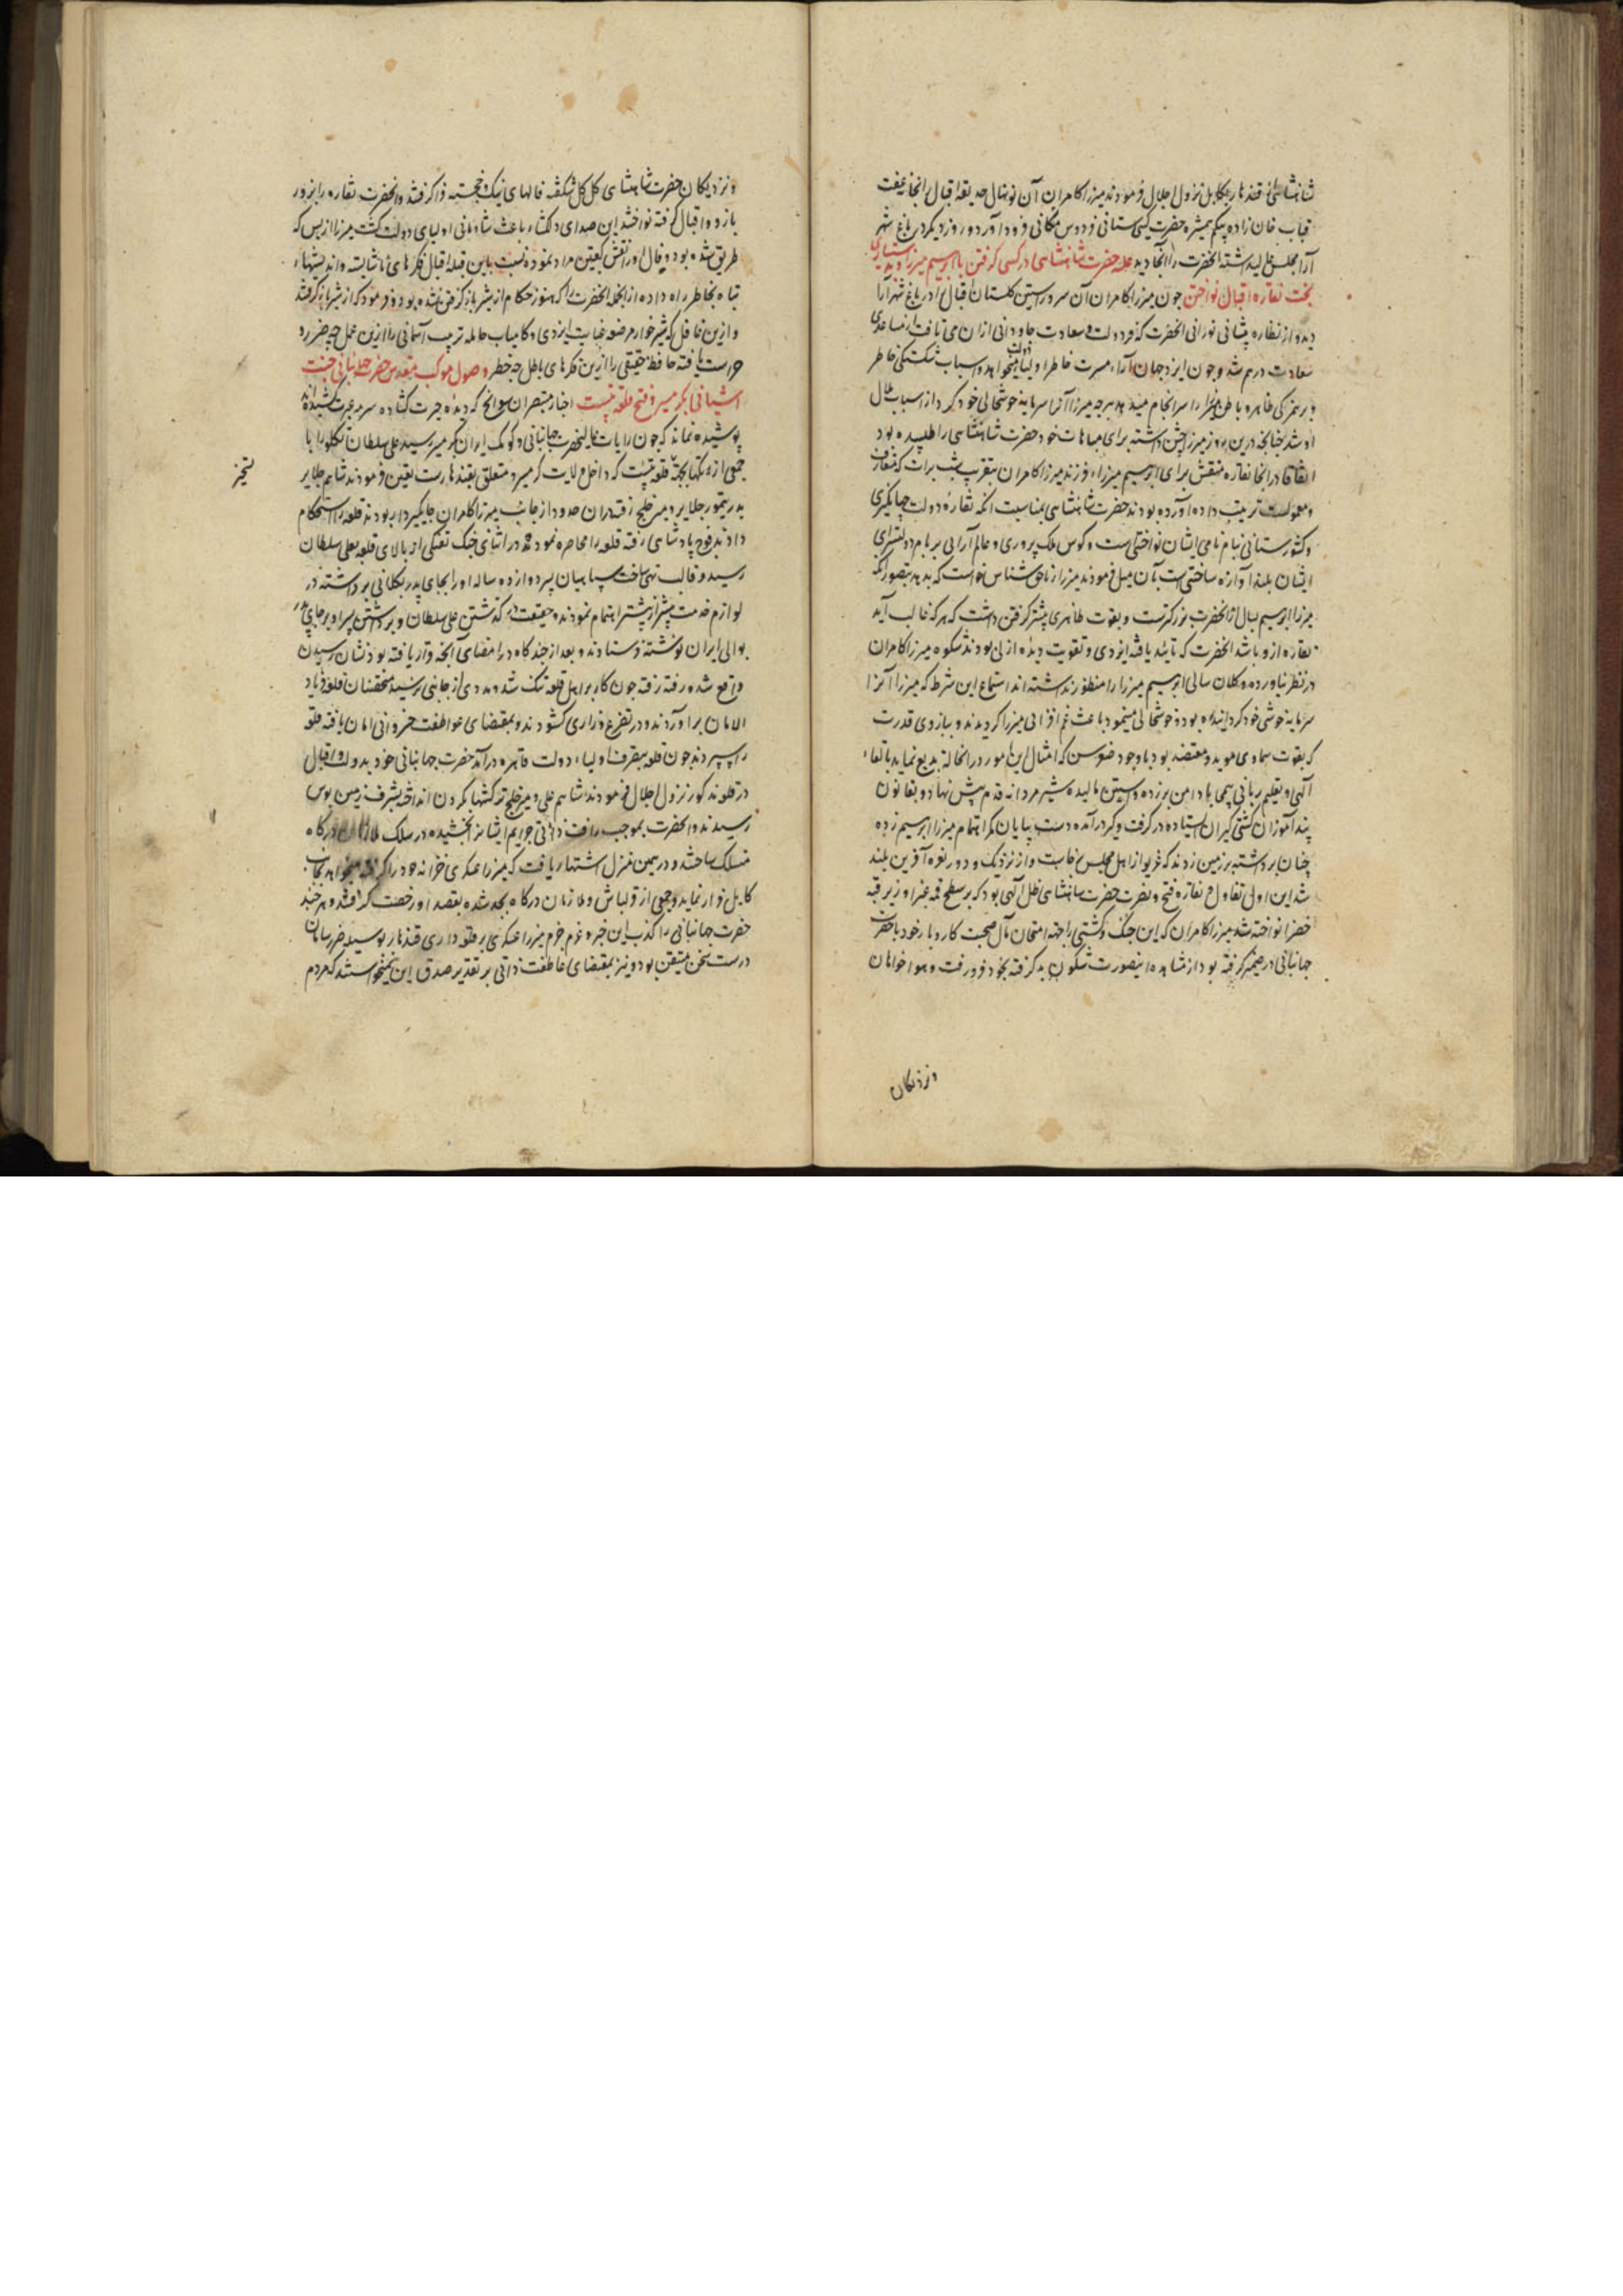 شاهنشاهی از قندهار بکابل نزول اجلال فرمودند میرزا کامران آن نونهال حدیقه اقبال را بخانه عفت
قباب خان زاده بیکم همشیره حضرت کیتی ستانی فردوس مکانی فرود آورد و روز دیکر در باغ شهر
آرا مجلس عالی داشته آنحضرت را آنجا دید غلبه حضرت شاهنشاهی در کشتی کرفتن با ابراهیم میرزا و بدستیاری
بخت نقاره اقبال نواختن چون میرزا کامران آن سرو راستین کلستان اقبال را در باغ شهر آرا
دید و از نظاره پیشانی نورانی آنحضرت که فر دولت و سعادت جاودانی از ان می تافت از نامساعدی
سعادت درهم شد و چون ایزد جهان آرا مسرت خاطر اولیای دولت میخواهد و اسباب شکستکی خاطر
او شد چنانچه درین روز میرزا جشن داشته برای مباهات خود حضرت شاهنشاهی را طلبیده بود
اتفاقا در انجا نقاره منقش برای ابراهیم میرزا فرزند میرزا کامران بتقریب شب برات که متعارف
و معمولست ترتیب داده آورده بودند حضرت شاهنشاهی بمناسبت آنکه نقاره دولت جهانکیری
و کشورستانی بنام نامی ایشان نواختنی است و کوس ملک پروری و عالم آرایی بر بام دولتسرای
ایشان بلند آوازه ساختنی است بآن میل فرمودند میرزا از ناحق شناسی نخواست که بدهد بتصور آنکه
میرزا ابراهیم بسال از آنحضرت بزرکترست و بقوت ظاهری بیشتر کشتی کرفتن داشت که هر که غالب آید
نقاره ازو باشد آنحضرت که تائید یافته ایزدی و تقویت دیده ازلی بودند شکوه میرزا کامران
در نظر نیاورده و کلان سالی ابراهیم میرزا را منظور نداشته از استماع این شرط که میرزا آنرا
سرمایه خوشی خود کردانیده بود خوشحالی مینمود باعث غم افزائی میرزا کردیدند و ببازوی قدرت
که بقوت سماوی موید و معتضد بود با وجود صغر سن که امثال این امور در انحالت بدیع نماید بالقاء
آلهی و تعلیم ربانی بیمحابا دامن بر زده و آستین مالیده شیر مردانه قدم پیش نهاد و بقانون
پند آموزان کشتی کیران ایستاده در کرفت و کیر درآمده دست بپایان کمر اهتمام میرزا ابراهیم زده
چنان برداشته بر زمین زدند که غریو از اهل مجلس بخاست و از نزدیک و دور نعره آفرین بلند
شد این اول تفاول نقاره فتح و نصرت حضرت شاهنشاهی ظل آلهی بود که بر سطح قبه غبرا و زیر قبه
خضرا نواخته شد میرزا کامران که این جنک و کشتی را جهة امتحان مآل صحبت کار و بار خود با حضرت
جهانبانی در ضمیر کرفته بود از مشاهده اینصورت شکون بد کرفته بخود فرو رفت و هوا خواهان
ونزدیکان
ونزدیکان حضرت شاهنشاهی کل کل شکفته فالهای نیک و خجسته فرا کرفتند و آنحضرت نقاره را بزور
بازو و اقبال کرفته نواختند این صدای دلکشا باعث شادمانی اولیای دولت کشت میرزا از بس که
تباه بخاطر راه داده از انجمله آنحضرت را که هنوز هنکام از شیر باز کرفتن نشده بود فرمود که از شیر باز کرفتند
و ازین غافل که شیر خوار مرضعه عنایت ایزدی و کامیاب حامله تربیت آسمانی را ازین عمل چه ضرر و
حراست یافته حافظ حقیقی را ازین فکرهای باطل چه خطر وصول موکب مقدس حضرت جهانبانی جنت
آشیانی بکرمسیر و فتح قلعه بست اخبار متبصران سوانح که دیده حیرت کشاده سرمه عبرت کشیده اند
پوشیده نماند که چون رایات عالیات حضرت جهانبانی و کومک ایران بکرمسیر رسید علی سلطان تکلو را با
جمعی از تکلویان بجهة قلعه بست که داخل ولایت کرمسیر و متعلق بقندهارست تعین فرمودند شاهم جلایر
تسخیر
پدر تیمور جلایر و میر خلج رفته در ان حدود از جانب میرزا کامران جایکیردار بودند قلعه را استحکام
دادند فوج پادشاهی رفته قلعه را محاصره نمود و در اثنای جنک تفنکی از بالای قلعه بعلی سلطان
رسید و قالب تهی ساخت سپاهیان پسر دوازده ساله او را بجای پدر بکلانی برداشته در
لوازم خدمت بیشتر از پیشتر اهتمام نمودند و حقیقت در کذشتن علی سلطان و برداشتن پسر او بر جای پدر
بوالی ایران نوشته فرستادند و بعد از چند کاه در امضای آنچه قرار یافته بود نشان رسیدن
واقع شد و رفته رفته چون کار بر اهل قلعه تنک شد و مددی از جانبی نرسید متحصنان قلعه فریاد
الامان برآوردند و در تضرع و زاری کشودند و بمقتضای عواطفت خسروانی امان یافته قلعه
را سپردند چون قلعه بتصرف اولیاء دولت قاهره درآمد حضرت جهانبانی خود بدولت و اقبال
در قلعه مذکور نزول اجلال فرمودند شاهم علی و میر خلج ترکشها بکردن انداخته بشرف زمین بوس
رسیدند و آنحضرت بموجب رافت ذاتی جرایم ایشانرا بخشیده در سلک ملازمان درکاه
منسلک ساختند و در همین منزل اشتهار یافت که میرزا عسکری خزانه خود را کرفته میخواهد بجانب
کابل فرار نماید و جمعی از قزلباش و ملازمان درکاه بجد شده بقصد او رخصت کرفتند و هر چند
حضرت جهانبانی را کذب این خبر و عزم جزم میرزا عسکری بر قلعه داری قندهار بوسیله خبر رسانان
درست سخن متیقن بود و نیز بمقتضای عاطفت ذاتی بر تقدیر صدق این نمیخواستند که مردم